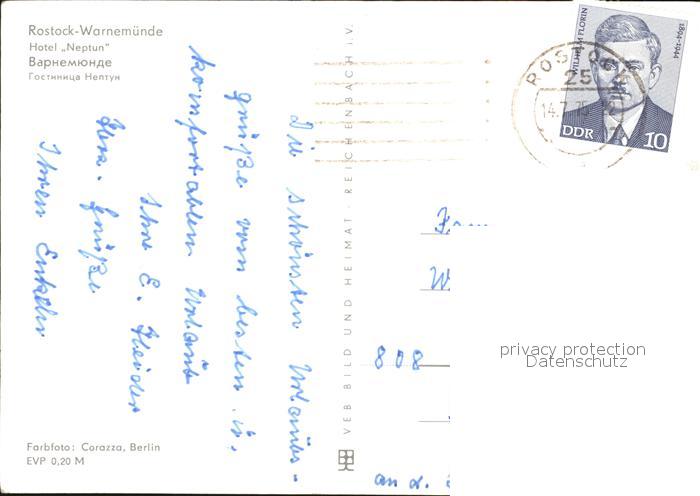 Rostock-Warnemünde
Hotel „Neptun"
Варнемюнде
Гостиница Нептун
Die schönsten Urlaubs-
grüße vom besten u.
komfortablen Urlaub
Ihre E. Heider
Herz. Grüße
Ihren Enkeln
Farbfoto: Corazza, Berlin
EVP 0,20 M
VEB BILD UND HEIMAT · REICHENBACH i. V.
WILHELM FLORIN
1894-1944
DDR 10
ROSTOCK
25
14.7.75
808
an d.
privacy protection
Datenschutz